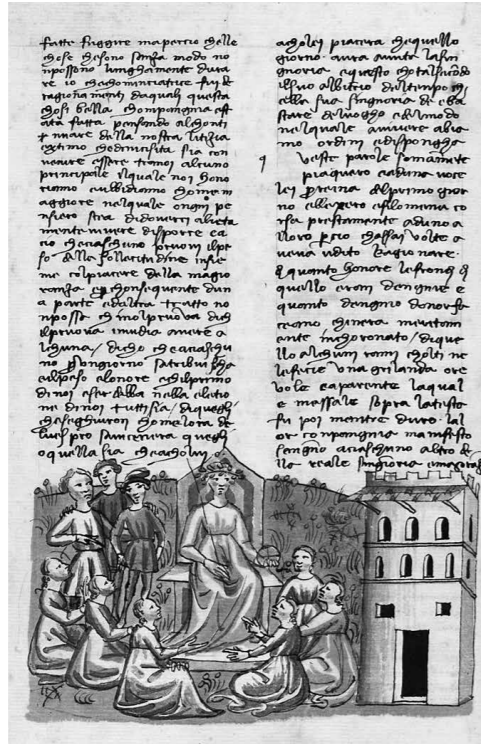 fatte fuggire ma percio chelle
chose chesono sanza modo no
npossono lunghamente dura
re io chechominciatrice fui de
ragionamenti daquali questa
chosi bella chompangnia est
ata fatta pensando alchonti
nuare della nostra letizia
extimo che sia con
venire essere tranoi alcuno
principale ilquale noi hono
riamo eubbidiamo chome m
aggiore nelquale ongni pe
nsiero stia didoverci alieta
mente vivere disporre ea
cio checiaschuno pruovi ilpe
so della sollecitudine insie
me colpiacere della magio
ranza e p chonsequente dun
a parte edaltra tratto no
npossa chi nolpruova dich
ilpruova invidia avere a
lchuna / dicho checiaschu
no pongiorno satribuischa
elpeso elonore echilprimo
dinoi esser debba nella eletio
ne dinoi tuttisia / diquegli
chaseghuiron chomelora de
lvespro quegli
oquella sia cheacholui
acholei piacera chequello
giorno avra avuta lasin
gnoria equesto chotale secodo
ilsuo albitrio deltempo ch
ella sua singnoria de ba
stare deluogho edelmodo
nelquale avivere abia
mo ordini edispongha
Queste parole somamete
piaquero eaduna voce
lei p reina delprimo gior
no elessero efilomena co
rsa prestamente aduno a
lloro p cio chassai volte a
veva udito ragionare
di quanto honore lefrondi di
quello eron dengnie e
quanto dengnio donor fa
ceano chinera meritam
ente inchoronato / dique
llo alchuni rami cholti ne
lefecie una grilanda ore
vole eaparente laqual
e messale sopra latesta
fu poi mentre duro lal
or conpangnia manifesto
sengnio aciaschuno altro de
lla reale singnioria